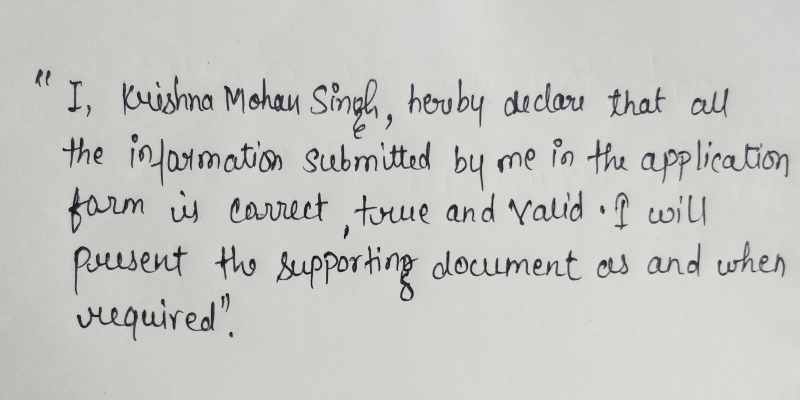 "I, Krishna Mohan Singh, herby declare that all
the information submitted by me in the application
form is correct, true and valid. I will
present the supporting document as and when
required".